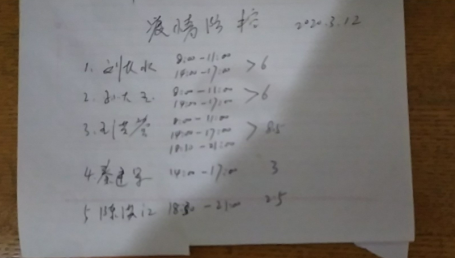 疫情防控 2020.3.12
1. 刘 水 8:00-11:00
14:00-17:00 > 6
2. 孙大玉 8:00-11:00
14:00-17:00 > 6
3. 8:00-11:00
14:00-17:00 > 8.5
18:30-21:00
4. 秦建 14:00-17:00 3
5 陈俊江 18:30-21:00 2.5